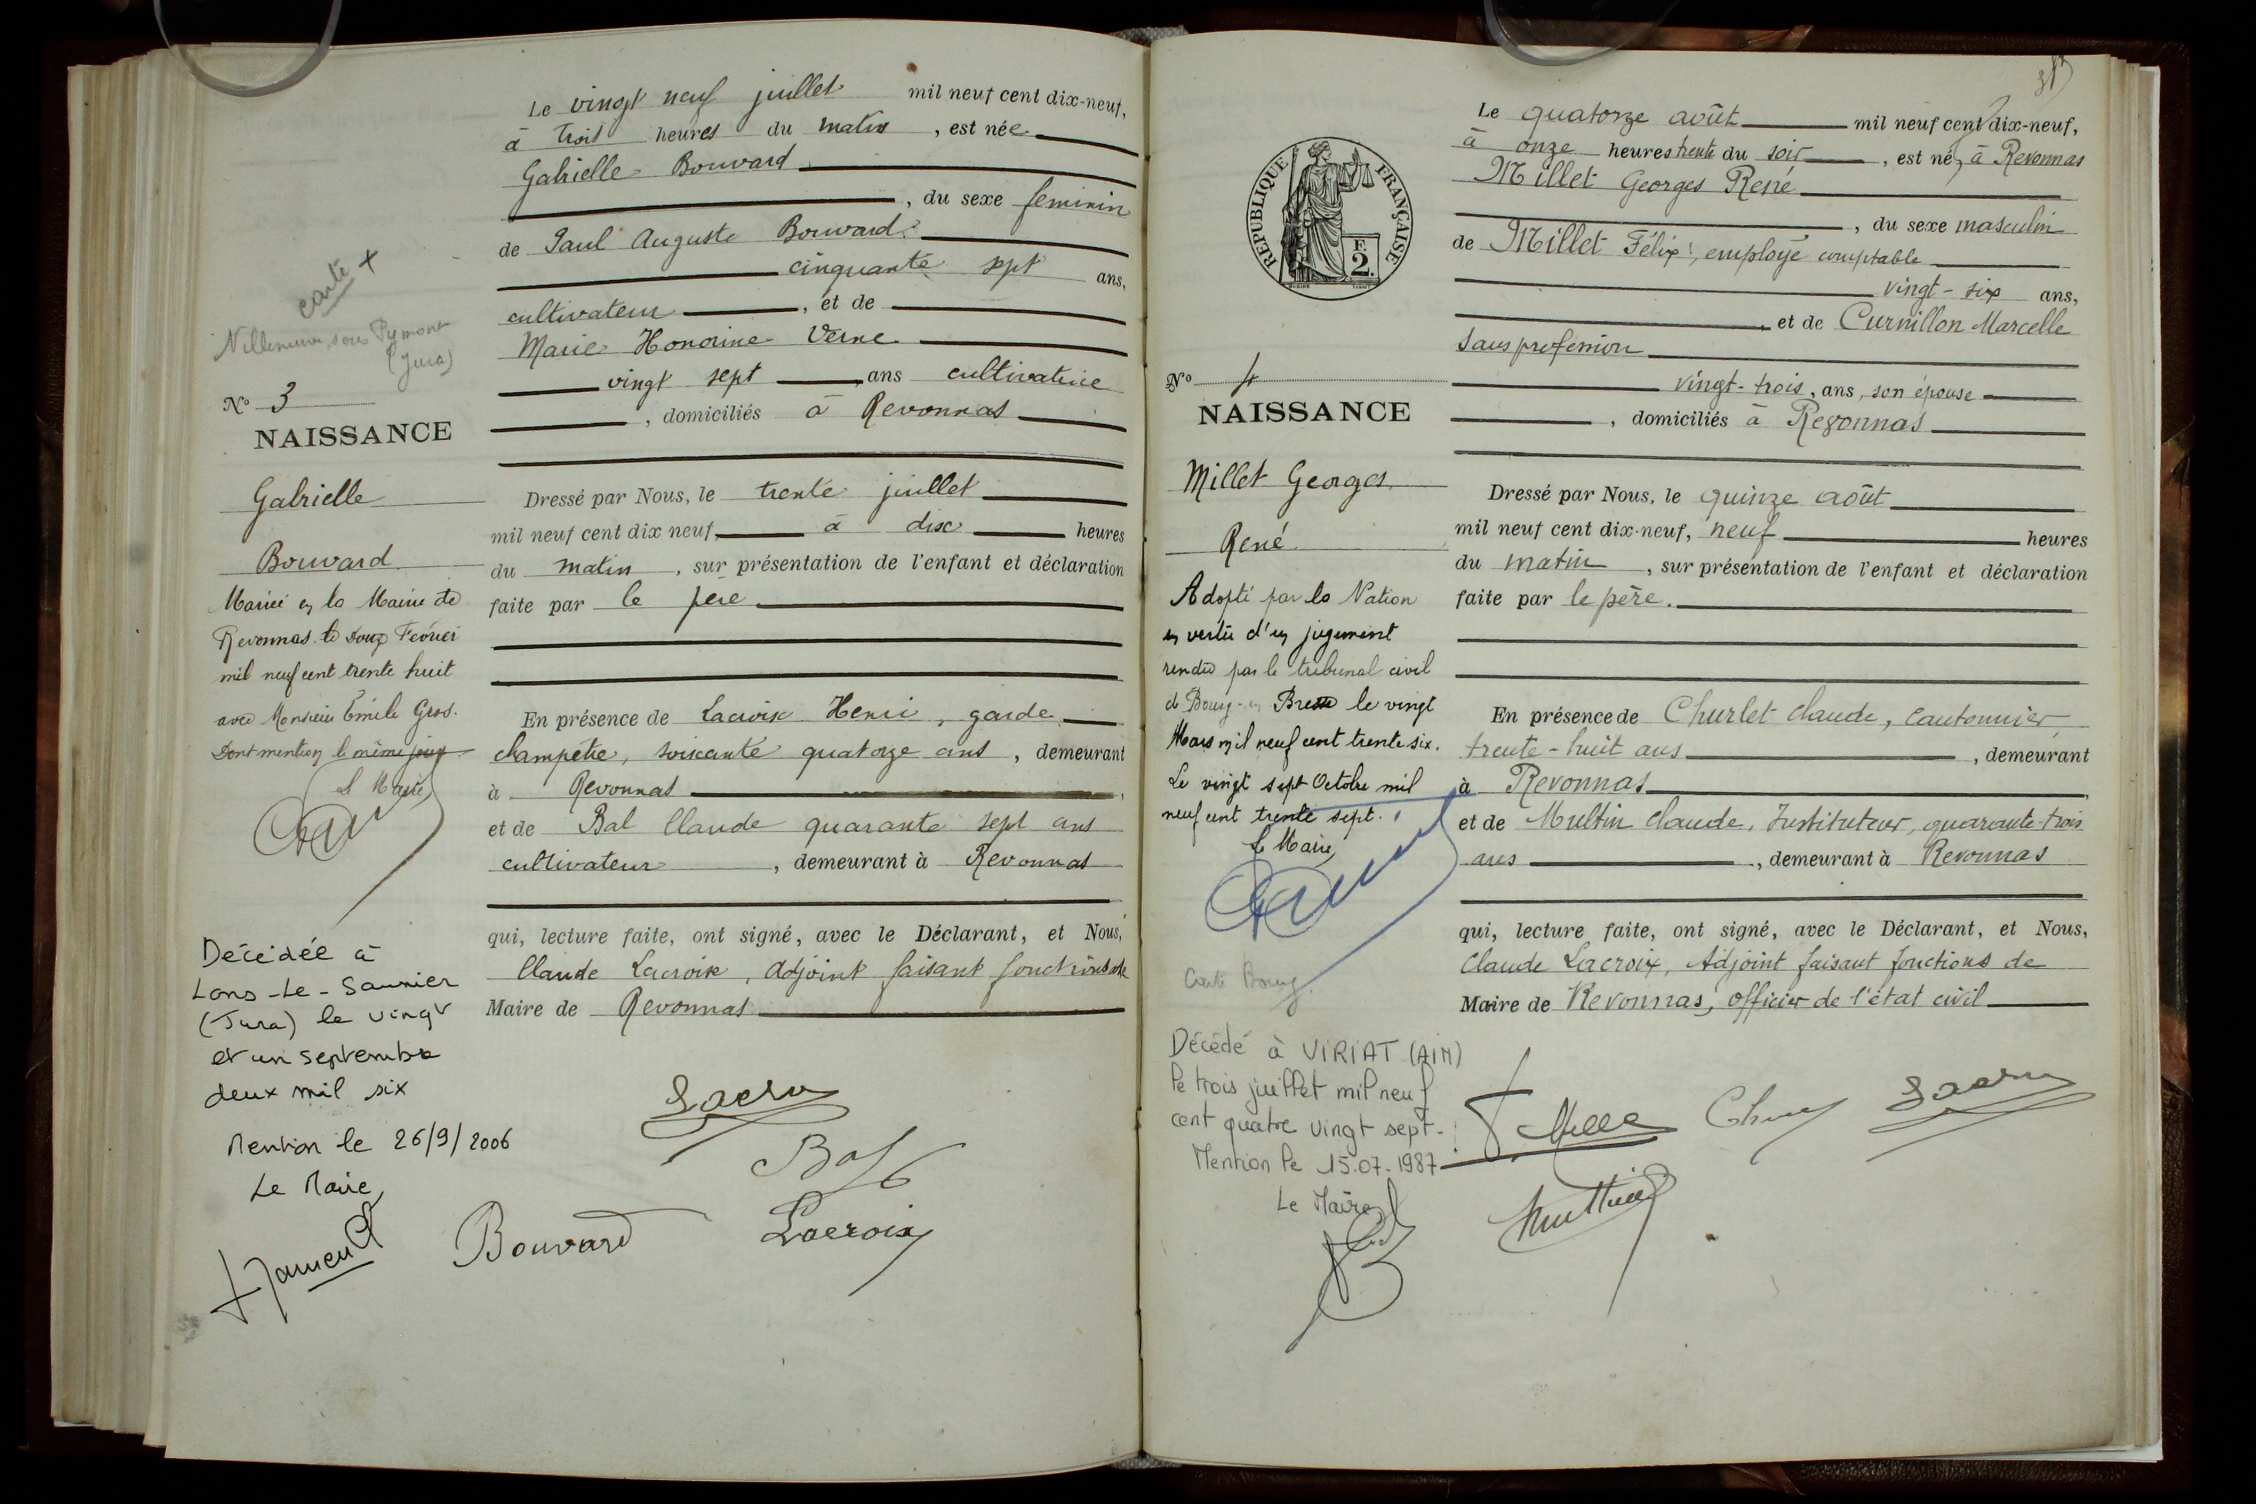 Le vingt neuf juillet mil neuf cent dix-neuf,
à trois heures du matin, est née
Gabrielle Bouvard
, du sexe feminin
de Paul Auguste Bouvard
cinquante sept ans,
cultivateur, et de
Marie Honorine Verne
vingt sept ans cultivatrice
, domiciliés à Revonnas
carte +
Villeneuve sous Pymont
(Jura)
No 3
NAISSANCE
Gabrielle
Bouvard
Mariée en la Mairie de
Revonnas le douze Février
mil neuf cent trente huit
avec Monsieur Émile Gros.
Dont mention le même jour
Le Maire,
Décédée à
Lons-Le-Saunier
(Jura) le vingt
et un septembre
deux mil six
Mention le 26/9/2006
Le Maire,
Dressé par Nous, le trente juillet
mil neuf cent dix neuf, à dix heures
du matin, sur présentation de l'enfant et déclaration
faite par le père
En présence de Lacroix Henri, garde
champêtre, soixante quatorze ans, demeurant
à Revonnas,
et de Bal Claude quarante sept ans
cultivateur, demeurant à Revonnas
qui, lecture faite, ont signé, avec le Déclarant, et Nous,
Claude Lacroix, Adjoint faisant fonctions de
Maire de Revonnas
Lacroix
Bal
Bouvard
Lacroix
Le quatorze août mil neuf cent dix-neuf,
à onze heures trente du soir, est né, à Revonnas
Millet Georges René
, du sexe masculin
de Millet Félix, employé comptable
vingt-six ans,
, et de Curnillon Marcelle
sans profession
vingt-trois, ans, son épouse
, domiciliés à Revonnas
RÉPUBLIQUE FRANÇAISE
F.
2.
No 4
NAISSANCE
Millet Georges
René
Adopté par la Nation
en vertu d'un jugement
rendu par le tribunal civil
de Bourg-en Bresse le vingt
Mars mil neuf cent trente six.
Le vingt sept Octobre mil
neuf cent trente sept.
Le Maire,
Carte Bourg.
Décédé à VIRIAT (AIN)
le trois juillet mil neuf
cent quatre vingt sept.
Mention le 15.07.1987
Le Maire
Dressé par Nous, le quinze août
mil neuf cent dix-neuf, neuf heures
du matin, sur présentation de l'enfant et déclaration
faite par le père.
En présence de Churlet Claude, cantonnier,
trente-huit ans, demeurant
à Revonnas,
et de Multin Claude, Instituteur, quarante-trois
ans, demeurant à Revonnas
qui, lecture faite, ont signé, avec le Déclarant, et Nous,
Claude Lacroix, Adjoint faisant fonctions de
Maire de Revonnas, officier de l'état civil